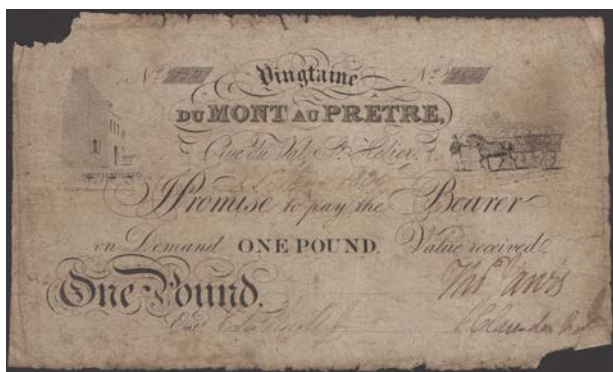 No. No.
Vingtaine
DU MONT AU PRÊTRE,
Rue du Val, St. Helier,
I Promise to pay the Bearer
on Demand ONE POUND. Value received
One Pound.
Entd.